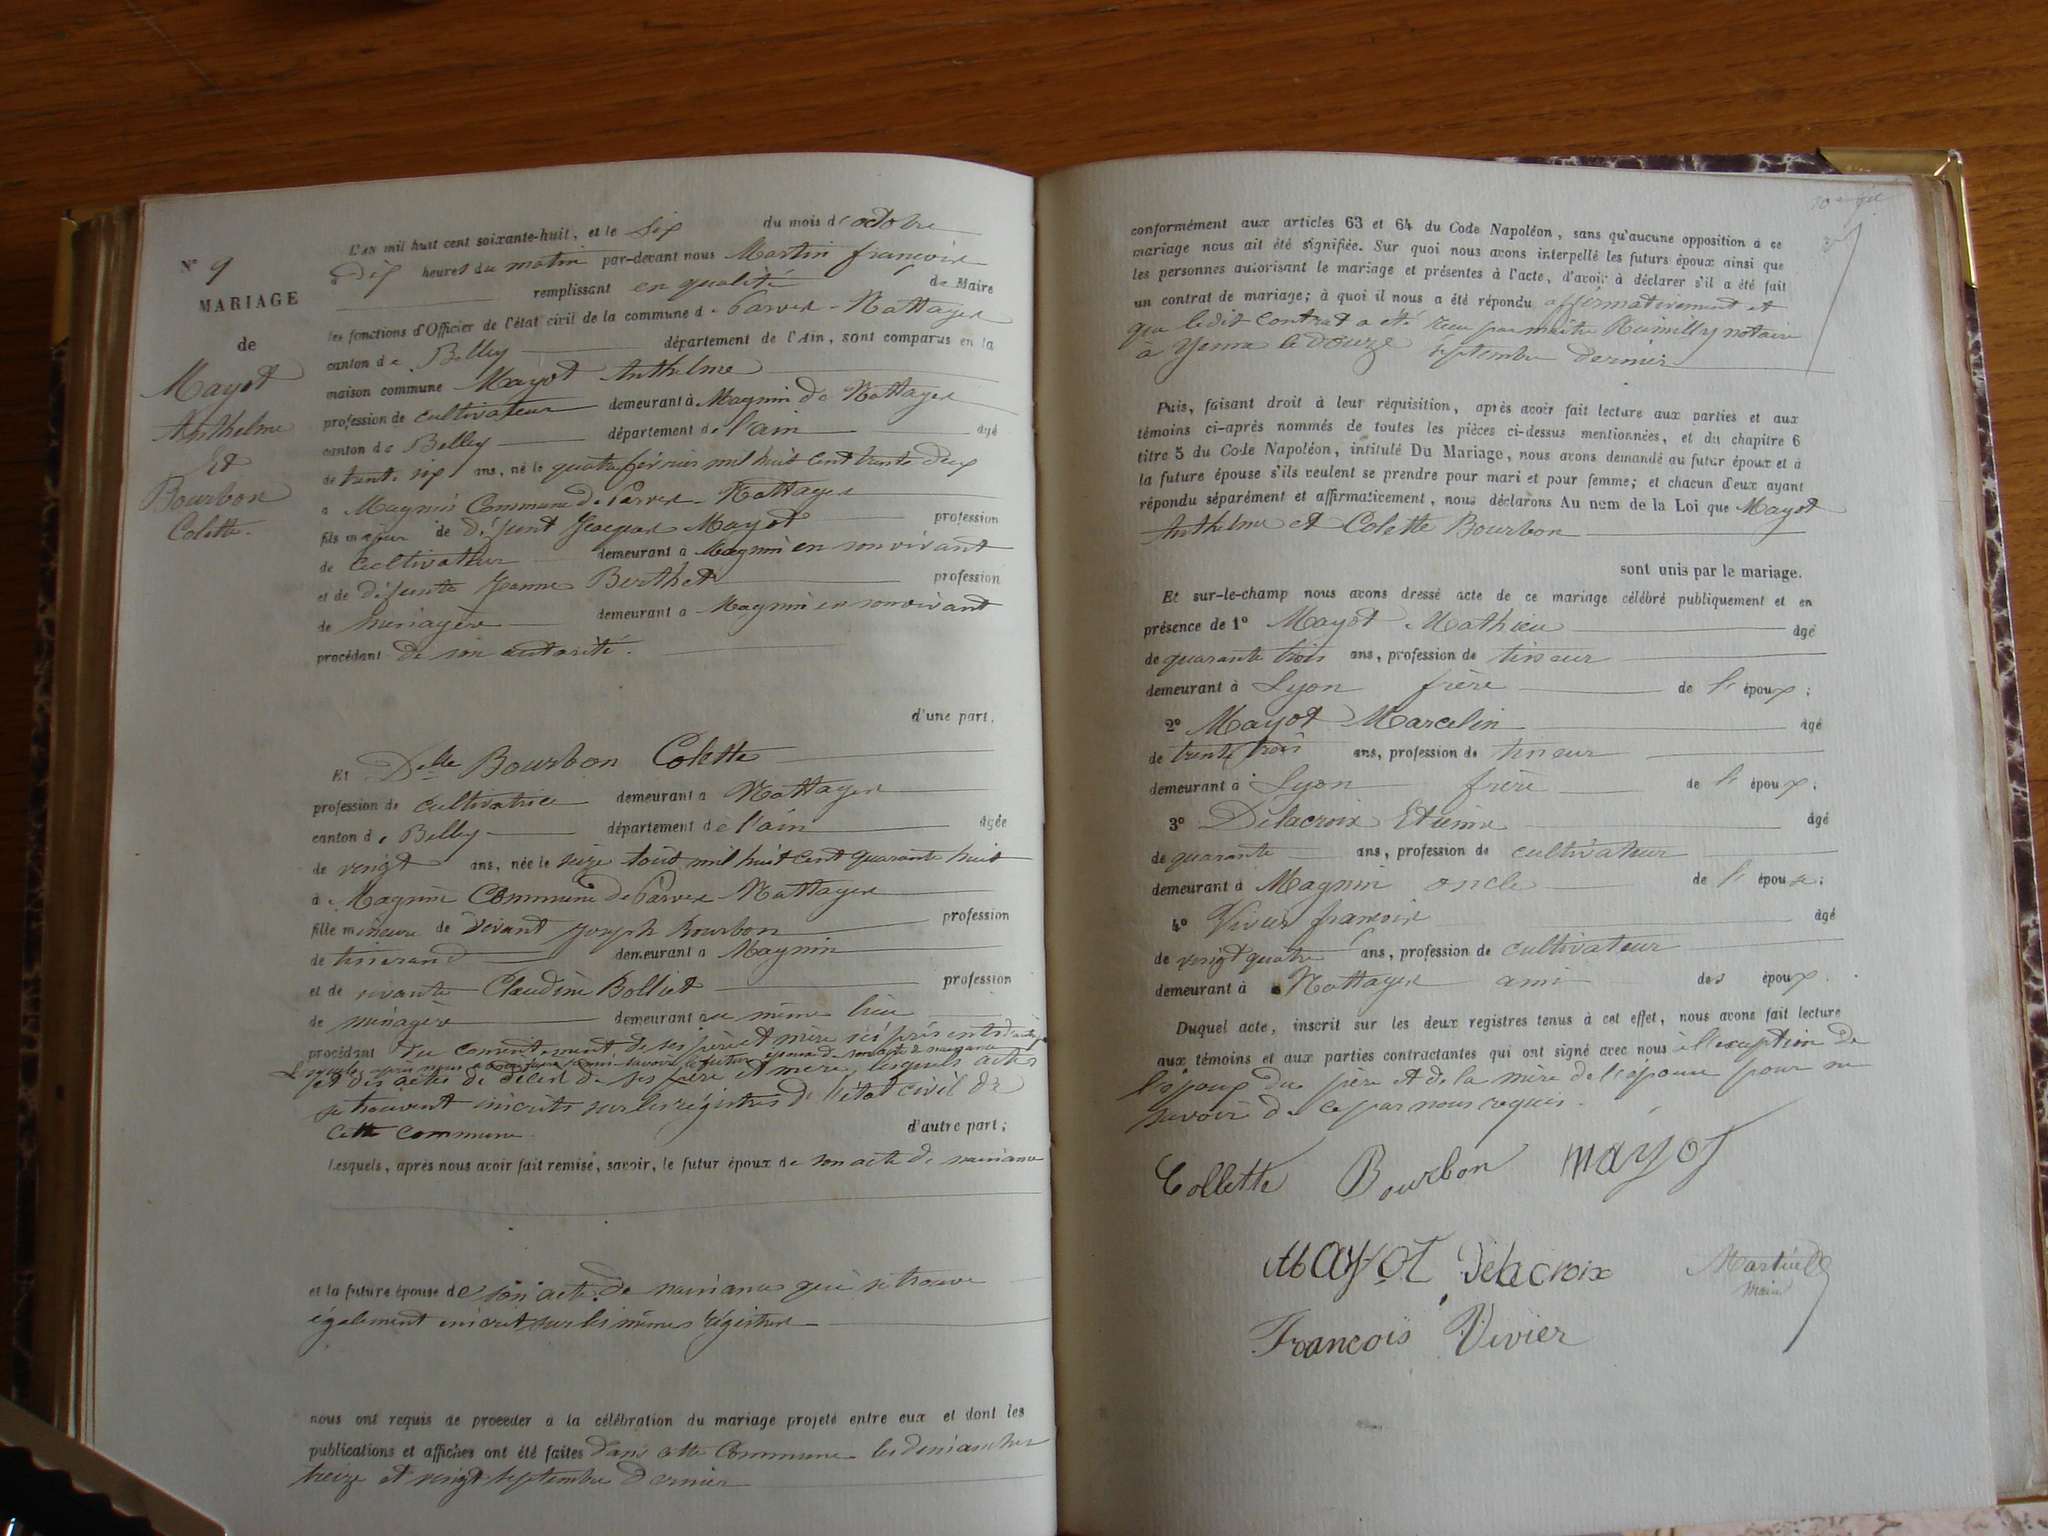 N° 9
MARIAGE
de
Mayot
Anthelme
Et
Bourbon
Colette.
L'AN mil huit cent soixante-huit, et le Six du mois d'octobre
Dix heures du matin par-devant nous Martin françois
remplissant en qualité de Maire
les fonctions d'Officier de l'état civil de la commune de Parves-Nattages
canton de Belley département de l'Ain, sont comparus en la
maison commune Mayot Anthelme
profession de cultivateur demeurant à Magnin de Nattages
canton de Belley département de l'ain âgé
de trente six ans, né le quatre février mil huit cent trente deux
à Magnin Commune de Parves-Nattages
fils majeur de défunt Jacques Mayot profession
de cultivateur demeurant à Magnin en son vivant
et de défunte Jeanne Berthet profession
de ménagère demeurant à Magnin en son vivant
procédant de son autorité.
d'une part,
Et Delle Bourbon Colette
profession de cultivatrice demeurant à Nattages
canton de Belley département de l'ain âgée
de vingt ans, née le seize août mil huit cent quarante huit
à Magnin Commune de Parves Nattages
fille mineure de vivant Joseph Bourbon profession
de tisserand demeurant à Magnin
et de vivante Claudine Bolliet profession
de ménagère demeurant au même lieu
procédant du consentement de ses père et mère ici présents
Lesquels après nous avoir fait remise savoir le futur époux de son acte de naissance
et des actes de décès de ses père et mère, lesquels actes
se trouvent inscrits sur les régistres de l'état civil de
cette commune. d'autre part;
Lesquels, après nous avoir fait remise, savoir, le futur époux de son acte de naissance
et la future épouse de son acte de naissance qui se trouve
également inscrit sur les mêmes régistres
nous ont requis de procéder à la célébration du mariage projeté entre eux et dont les
publications et affiches ont été faites dans cette Commune les dimanches
treize et vingt septembre dernier
conformément aux articles 63 et 64 du Code Napoléon, sans qu'aucune opposition à ce
mariage nous ait été signifiée. Sur quoi nous avons interpellé les futurs époux ainsi que
les personnes autorisant le mariage et présentes à l'acte, d'avoir à déclarer s'il a été fait
un contrat de mariage; à quoi il nous a été répondu affirmativement et
que ledit contrat a eté recu par maître Rumilly notaire
à Yenne le douze septembre dernier
Puis, faisant droit à leur réquisition, après avoir fait lecture aux parties et aux
témoins ci-après nommés de toutes les pièces ci-dessus mentionnées, et du chapitre 6
titre 5 du Code Napoléon, intitulé Du Mariage, nous avons demandé au futur époux et à
la future épouse s'ils veulent se prendre pour mari et pour femme; et chacun d'eux ayant
répondu séparément et affirmativement, nous déclarons Au nom de la Loi que Mayot
Anthelme et Colette Bourbon
sont unis par le mariage.
Et sur-le-champ nous avons dressé acte de ce mariage célébré publiquement et en
présence de 1° Mayot Mathieu âgé
de quarante trois ans, profession de tisseur
demeurant à Lyon frère de l'époux;
2° Mayot Marcelin âgé
de trente trois ans, profession de tisseur
demeurant à Lyon frère de l'époux;
3° Delacroix Etienne âgé
de quarante ans, profession de cultivateur
demeurant à Magnin oncle de l'épouse;
4° Vivier françois âgé
de vingt quatre ans, profession de cultivateur
demeurant à Nattages ami des époux.
Duquel acte, inscrit sur les deux registres tenus à cet effet, nous avons fait lecture
aux témoins et aux parties contractantes qui ont signé avec nous à l'exception de
l'époux du père et de la mère de l'épouse pour ne
savoir de ce par nous requis.
Collette Bourbon mayot
MAYOT Delacroix
Maire
François Vivier